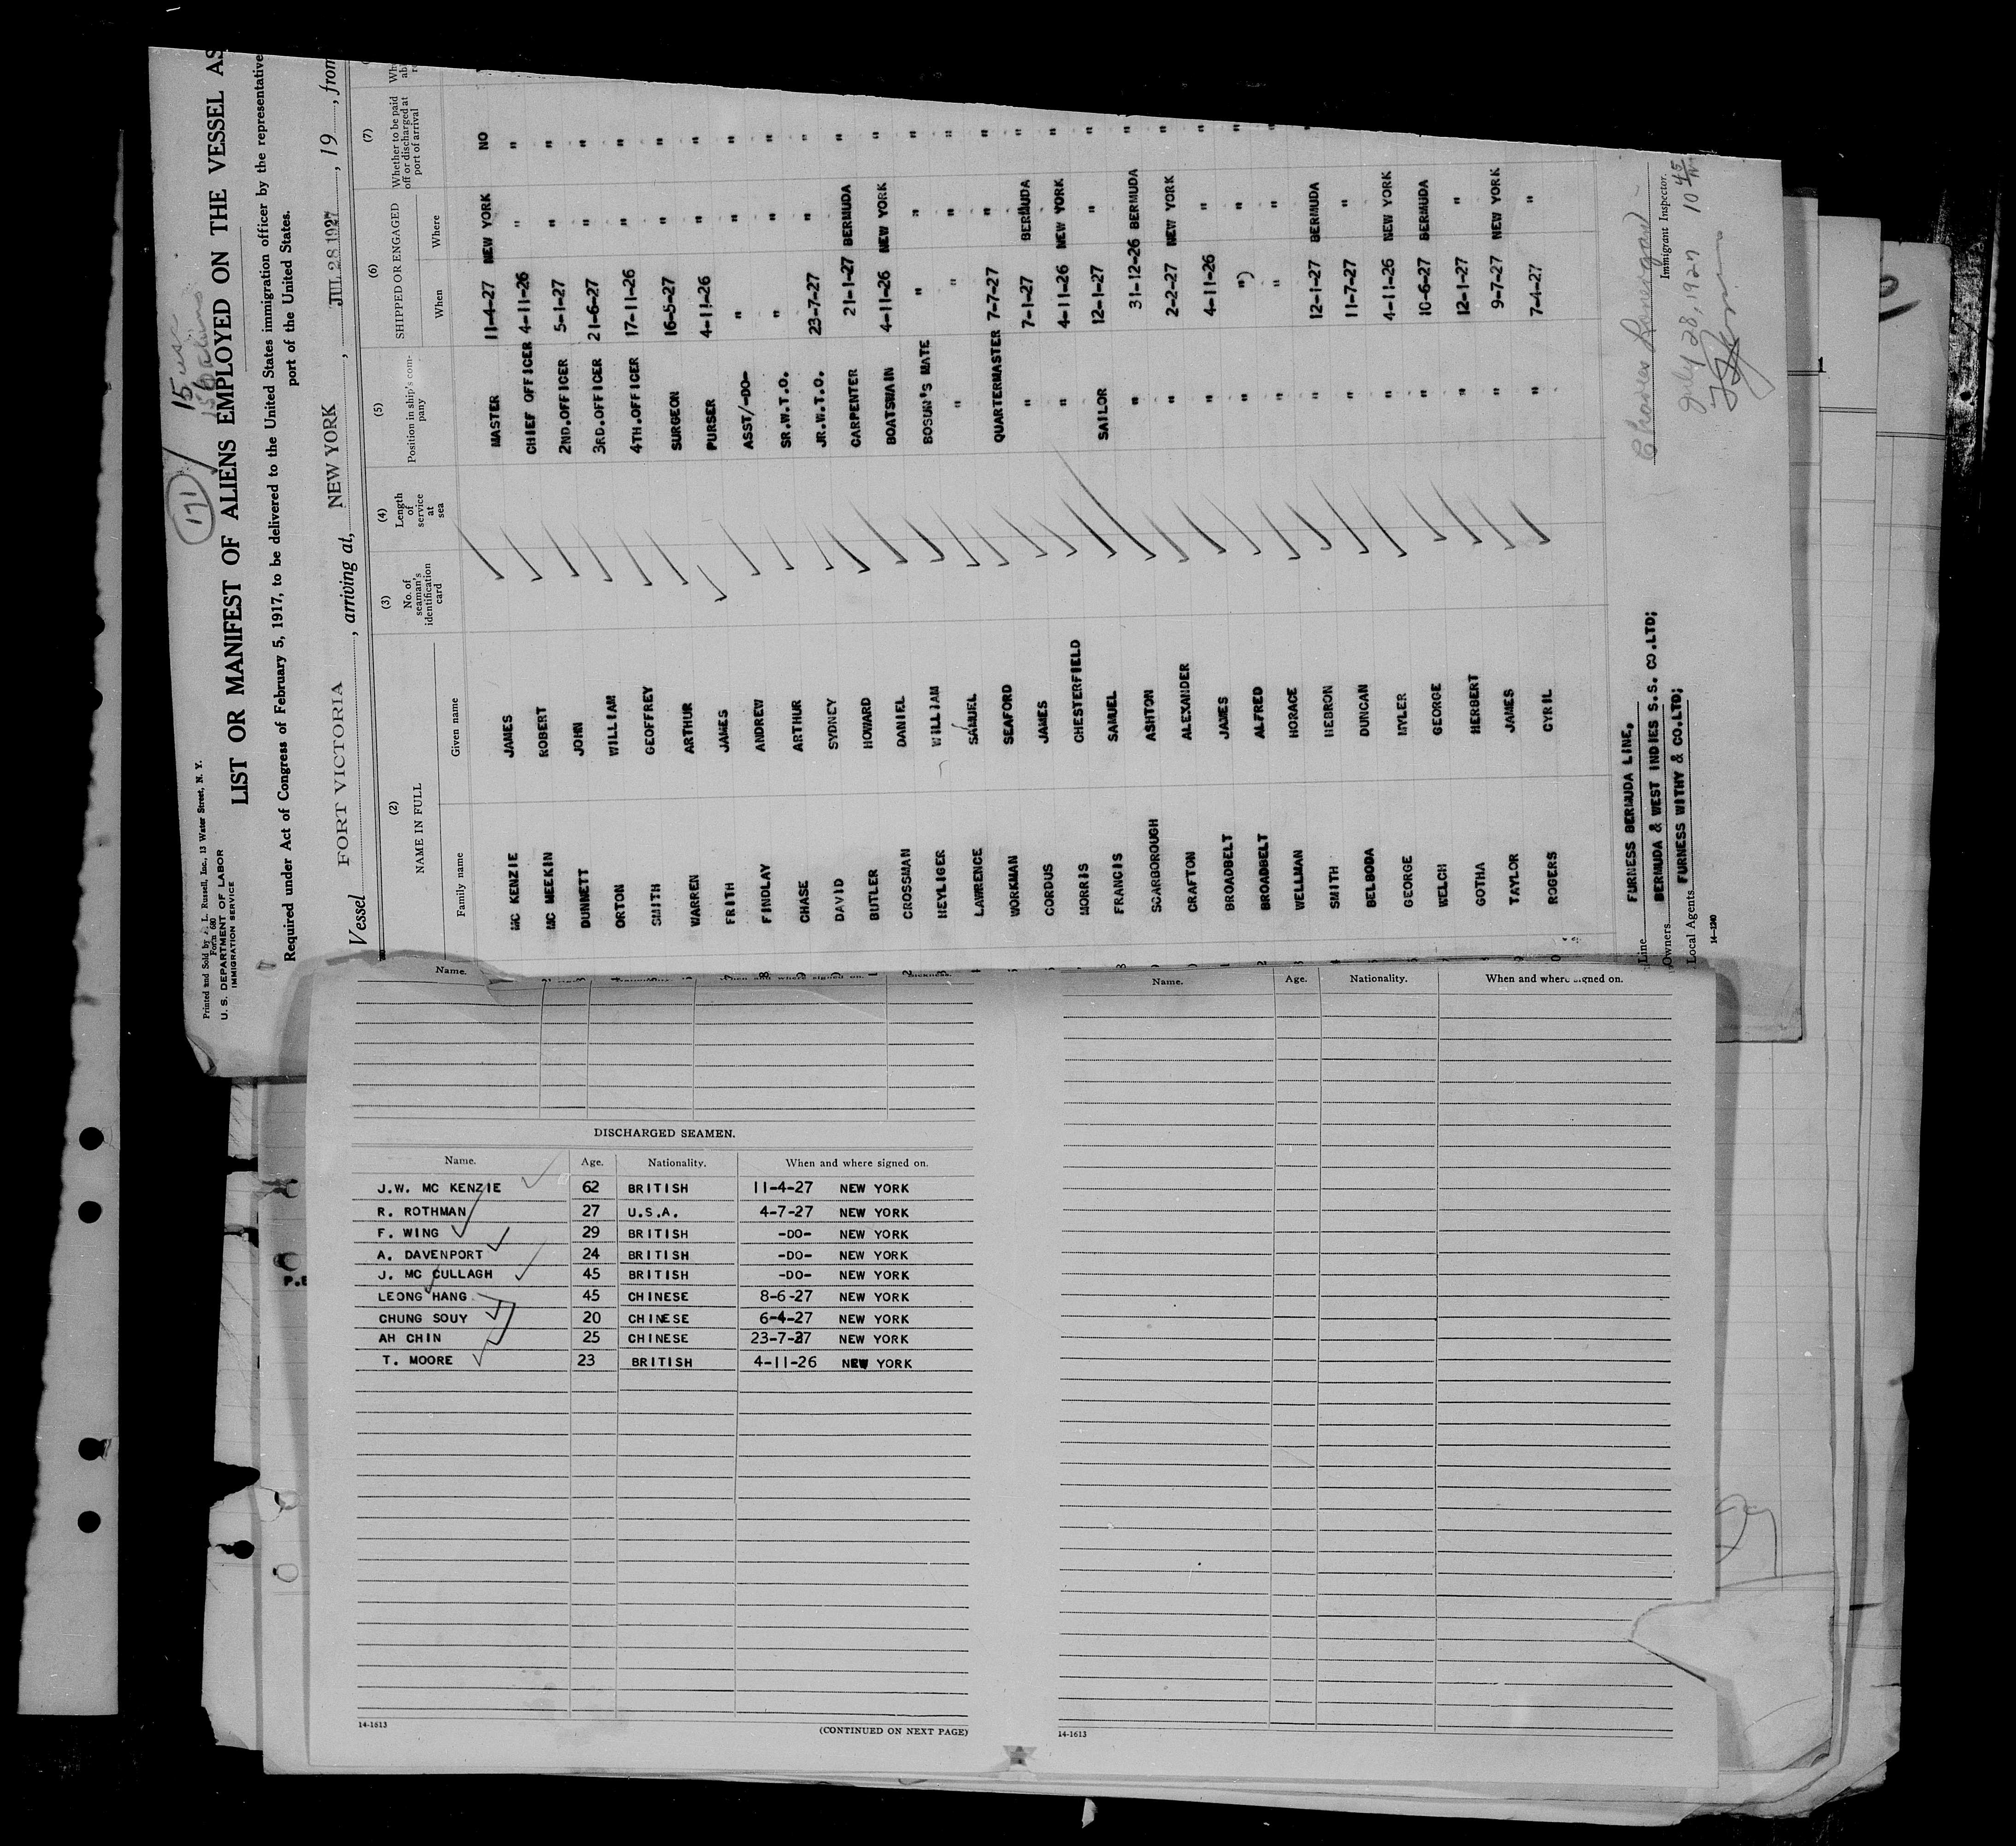 Printed and Sold by L. Russell, Inc., 13 Water Street, N. Y.
Form 680
U. S. DEPARTMENT OF LABOR
IMMIGRATION SERVICE
191
15
LIST OR MANIFEST OF ALIENS EMPLOYED ON THE VESSEL AS
Required under Act of Congress of February 5, 1917, to be delivered to the United States immigration officer by the representative
port of the United States.
Vessel FORT VICTORIA, arriving at, NEW YORK, JUL 28 1927, 19, from
(2) (3) (4) (5) (6) (7)
NAME IN FULL No. of seaman's identification card Length of service at sea Position in ship's company SHIPPED OR ENGAGED Whether to be paid off or discharged at port of arrival
Family name Given name When Where
MC KENZIE JAMES MASTER 11-4-27 NEW YORK NO
MC MEEKIN ROBERT CHIEF OFFICER 4-11-26 " "
DUNNETT JOHN 2ND.OFFICER 5-1-27 " "
ORTON WILLIAM 3RD.OFFICER 21-6-27 " "
SMITH GEOFFREY 4TH.OFFICER 17-11-26 " "
WARREN ARTHUR SURGEON 16-5-27 " "
FRITH JAMES PURSER 4-11-26 " "
FINDLAY ANDREW ASST/-DO- " " "
CHASE ARTHUR SR.W.T.O. " " "
DAVID SYDNEY JR.W.T.O. 23-7-27 " "
BUTLER HOWARD CARPENTER 21-1-27 BERMUDA "
CROSSMAN DANIEL BOATSWAIN 4-11-26 NEW YORK "
HEYLIGER WILLIAM BOSUN'S MATE " " "
LAWRENCE SAMUEL " " " "
WORKMAN SEAFORD QUARTERMASTER 7-7-27 " "
CORDUS JAMES " 7-1-27 BERMUDA "
MORRIS CHESTERFIELD " 4-11-26 NEW YORK "
FRANCIS SAMUEL SAILOR 12-1-27 " "
SCARBOROUGH ASHTON " 31-12-26 BERMUDA "
CRAFTON ALEXANDER " 2-2-27 NEW YORK "
BROADBELT JAMES " 4-11-26 " "
BROADBELT ALFRED " ") " "
WELLMAN HORACE " " " "
SMITH HEBRON " 12-1-27 BERMUDA "
BELBODA DUNCAN " 11-7-27 "
GEORGE MYLER " 4-11-26 NEW YORK
WELCH GEORGE " 10-6-27 BERMUDA
GOTHA HERBERT " 12-1-27 "
TAYLOR JAMES " 9-7-27 NEW YORK
ROGERS CYRIL " 7-4-27 "
Line FURNESS BERMUDA LINE,
Owners BERMUDA & WEST INDIES S.S. CO.LTD;
Local Agents FURNESS WITHY & CO.LTD;
14-1240
Charles Lonergan
Immigrant Inspector.
July 28, 1927 10 45
Name.
Name. Age. Nationality. When and where signed on.
DISCHARGED SEAMEN.
Name. Age. Nationality. When and where signed on.
J.W. MC KENZIE 62 BRITISH 11-4-27 NEW YORK
R. ROTHMAN 27 U.S.A. 4-7-27 NEW YORK
F. WING 29 BRITISH -DO- NEW YORK
A. DAVENPORT 24 BRITISH -DO- NEW YORK
J. MC CULLAGH 45 BRITISH -DO- NEW YORK
LEONG HANG 45 CHINESE 8-6-27 NEW YORK
CHUNG SOUY 20 CHINESE 6-4-27 NEW YORK
AH CHIN 25 CHINESE 23-7-27 NEW YORK
T. MOORE 23 BRITISH 4-11-26 NEW YORK
14-1613
(CONTINUED ON NEXT PAGE)
14-1613